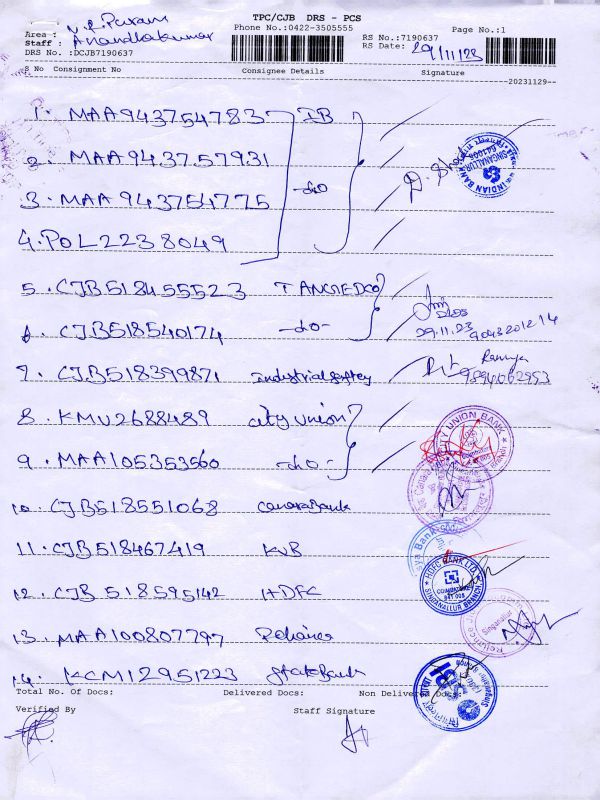 TPC/CJB DRS - PCS
Phone No.:0422-3505555
Page No.:1
Area : V.R Puram
Staff : Anandhakumar
DRS No.: DCJB7190637
RS No.:7190637
RS Date: 29/11/23
S No Consignment No Consignee Details Signature
--20231129--
1. MAA943754783 IB
2. MAA943757931
3. MAA943754775 -do-
4. POL2238049
INDIAN BANK SINGANALLUR 641005
5. CJB518455523 TANGEDCO
6. CJB518540174 -do-
29.11.23 9043201214
7. CJB518399871 industrial saftey
Ramya
9894062953
8. KMU2688489 city union
9. MAA105353560 -do-
CITY UNION BANK
10. CJB518551068 canara Bank
11. CJB518467419 KVB
12. CJB 518595142 HDFC
HDFC BANK LTD. COIMBATORE 641 005 SINGANALLUR BRANCH
13. MAA100807797 Reliance
Singanallur
14. KCM12951223 State Bank
Total No. Of Docs: Delivered Docs: Non Delivered Docs:
Verified By Staff Signature